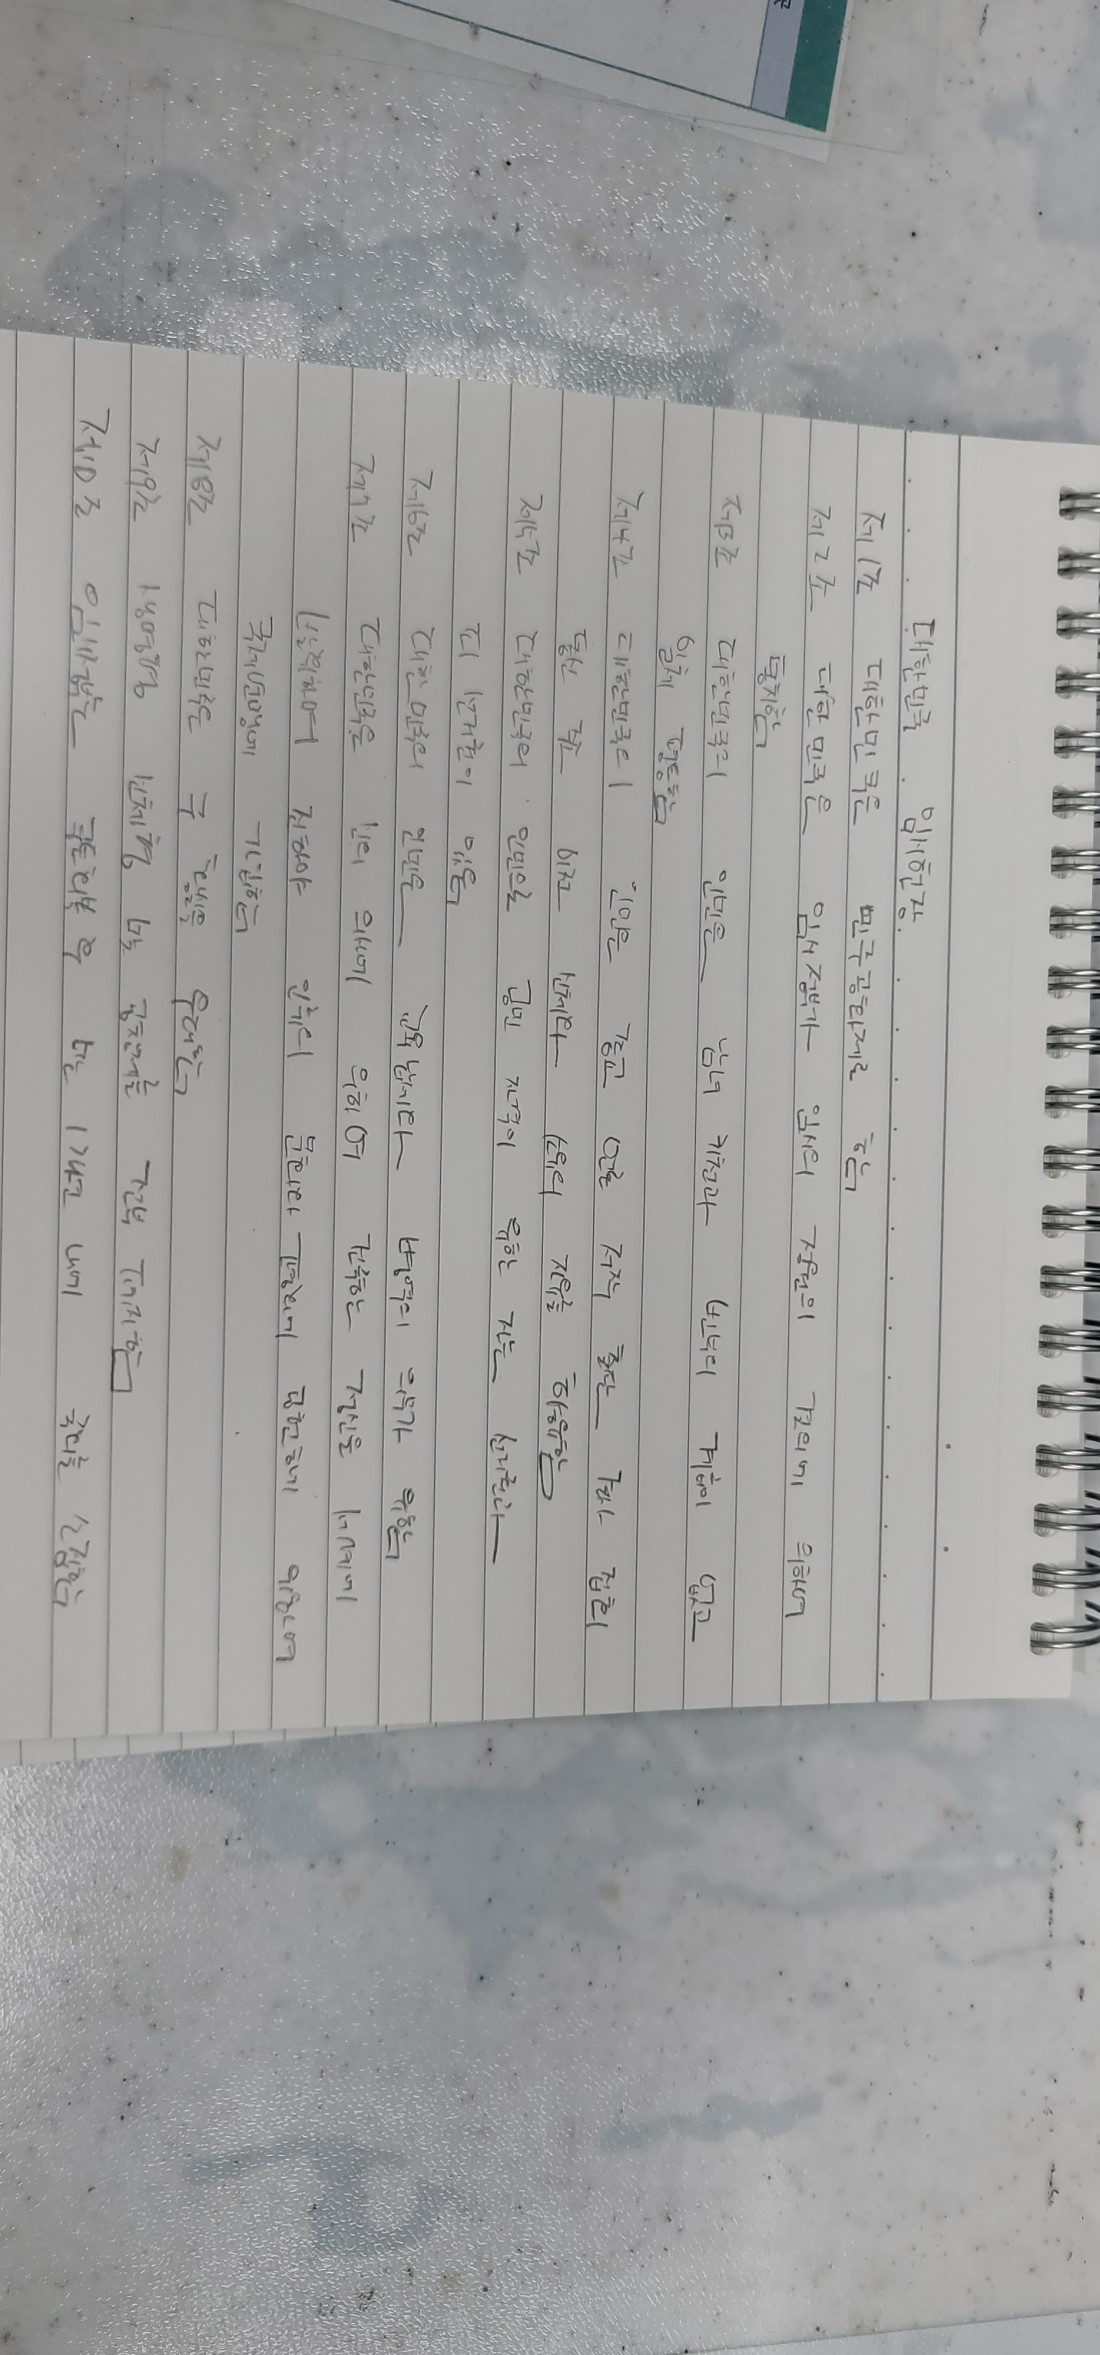 대한민국 임시헌장.
제1조 대한민국은 민주공화제로 함
제2조 대한민국은 임시정부가 임시의 정원의 결의에 의하여
통치함
제3조 대한민국의 인민은 남녀 귀천과 빈부의 계급이 없고
일체 평등함
제4조 대한민국의 인민은 종교 언론 저작 출판 결사 집회
통신 주소 이전 신체와 소유의 자유를 향유함
제5조 대한민국의 인민으로 공민 자격이 유한 자는 선거권과
피선거권이 있음
제6조 대한민국의 인민은 교육 납세와 병역의 의무가 유함
제7조 대한민국은 신의 의사에 의하여 건국한 정신을 세계에
발휘하며 나아가 인류의 문화와 평화에 공헌하기 위하여
국제연맹에 가입함
제8조 대한민국은 구 황실을 우대함
제9조 생명형 신체형 및 공창제를 전부 폐지함
제10조 임시정부는 국토회복 후 만 1개년 내에 국회를 소집함